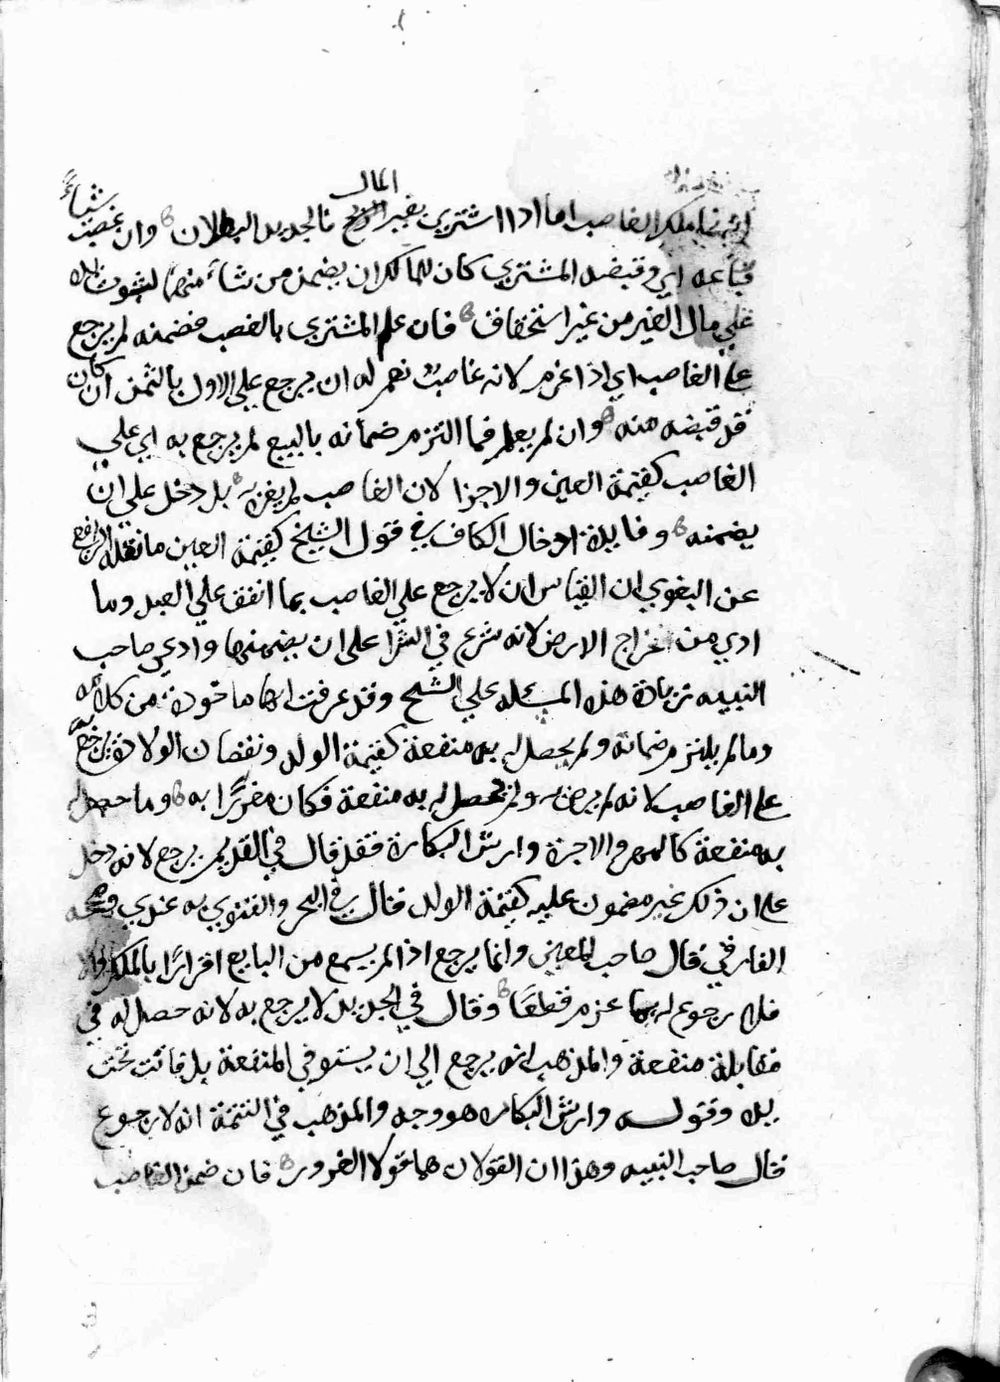 المال
انه نما ملك الغاصب اما اذا اشترى بغير فالجديد البطلان وان غصب شياً
فباعه اي وقبضه المشتري كان للمالك ان يضمن من شاء منهما لثبوت يده
علي مال الغير من غير استحقاق فان علم المشتري بالغصب فضمنه لم يرجع
علي الغاصب اي اذا غرم لانه غاصب نعم له ان يرجع علي الاول بالثمن ان كان
قد قبضه منه وان لم يعلم فما التزم ضمانه بالبيع لم يرجع به اي علي
الغاصب كقيمة العين والاجزا لان الغاصب لم يغره بل دخل علي ان
يضمنه وفايدة ادخال الكاف في قول الشيخ كقيمة العين ما نقله الرافعي
عن البغوي ان القياس ان لا يرجع علي الغاصب بما انفق علي العبد وما
ادي من خراج الارض لانه شرع في الشرا علي ان يضمنها وادعي صاحب
التنبيه زيادة هذه المسئله علي الشيخ وقد عرفت انها ماخوذة من كلامه
وما لم يلتزم ضمانه ولم يحصل له به منفعة كقيمة الولد ونقصان الولادة يرجع به
علي الغاصب لانه لم يرض به ولم يحصل له به منفعة فكان مغررًا به وما حصل له
به منفعة كالمهر والاجرة وارش البكارة فقد قال في القديم يرجع لانه دخل
علي ان ذلك غير مضمون عليه كقيمة الولد قال في البحر والفتوي به عندي وصححه
الفارقي قال صاحب المعين وانما يرجع اذا لم يسمع من البايع اقرارًا بالملك والا
فلا رجوع له بما غرم قطعًا وقال في الجديد لا يرجع به لانه حصل له في
مقابلة منفعة والمذهب انه يرجع الي ان يستوفي المنفعة بل فاتت تحت
يده وقوله وارش البكاره هو وجه والمذهب في التتمة انه لا رجوع
قال صاحب التنبيه وهذا ان القولان هما قولا الغرور فان ضمن الغاصب